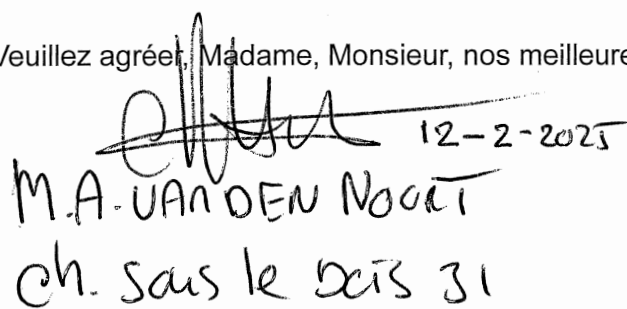 Veuillez agréer, Madame, Monsieur, nos meilleure
12-2-2025
M.A. VAN DEN NOORT
Ch. Sous le Bois 31